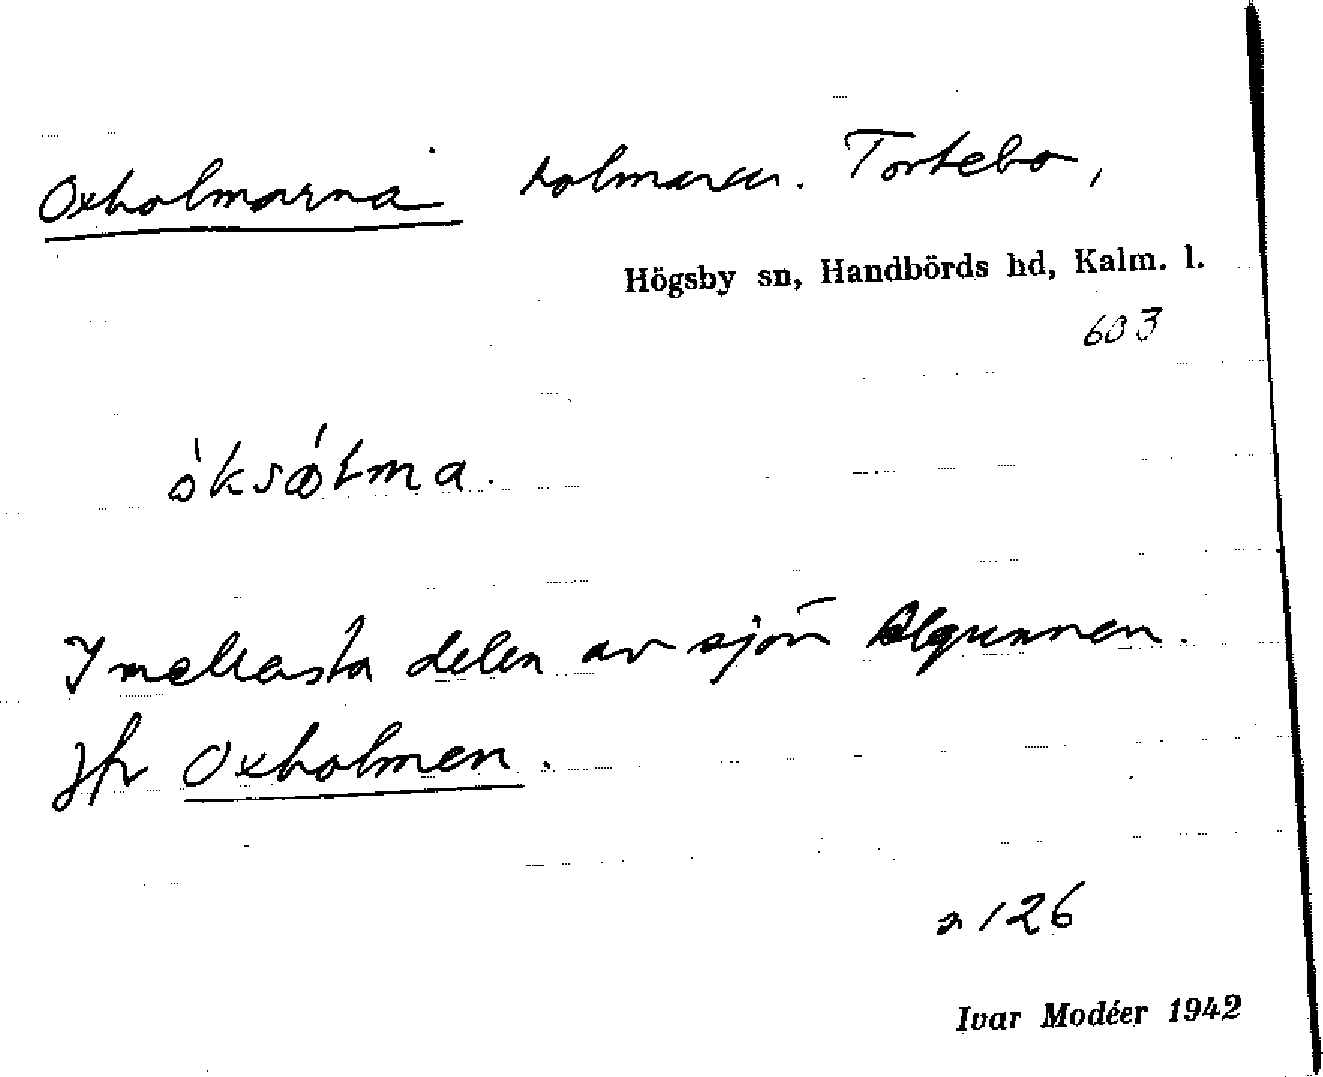 Oxholmarna holmarar. Tortebo,
Högsby sn, Handbörds hd, Kalm. l.
603
I mellersta delen av sjön Algunnen.
Jfr Oxholmen.
a 126
Ivar Modéer 1942